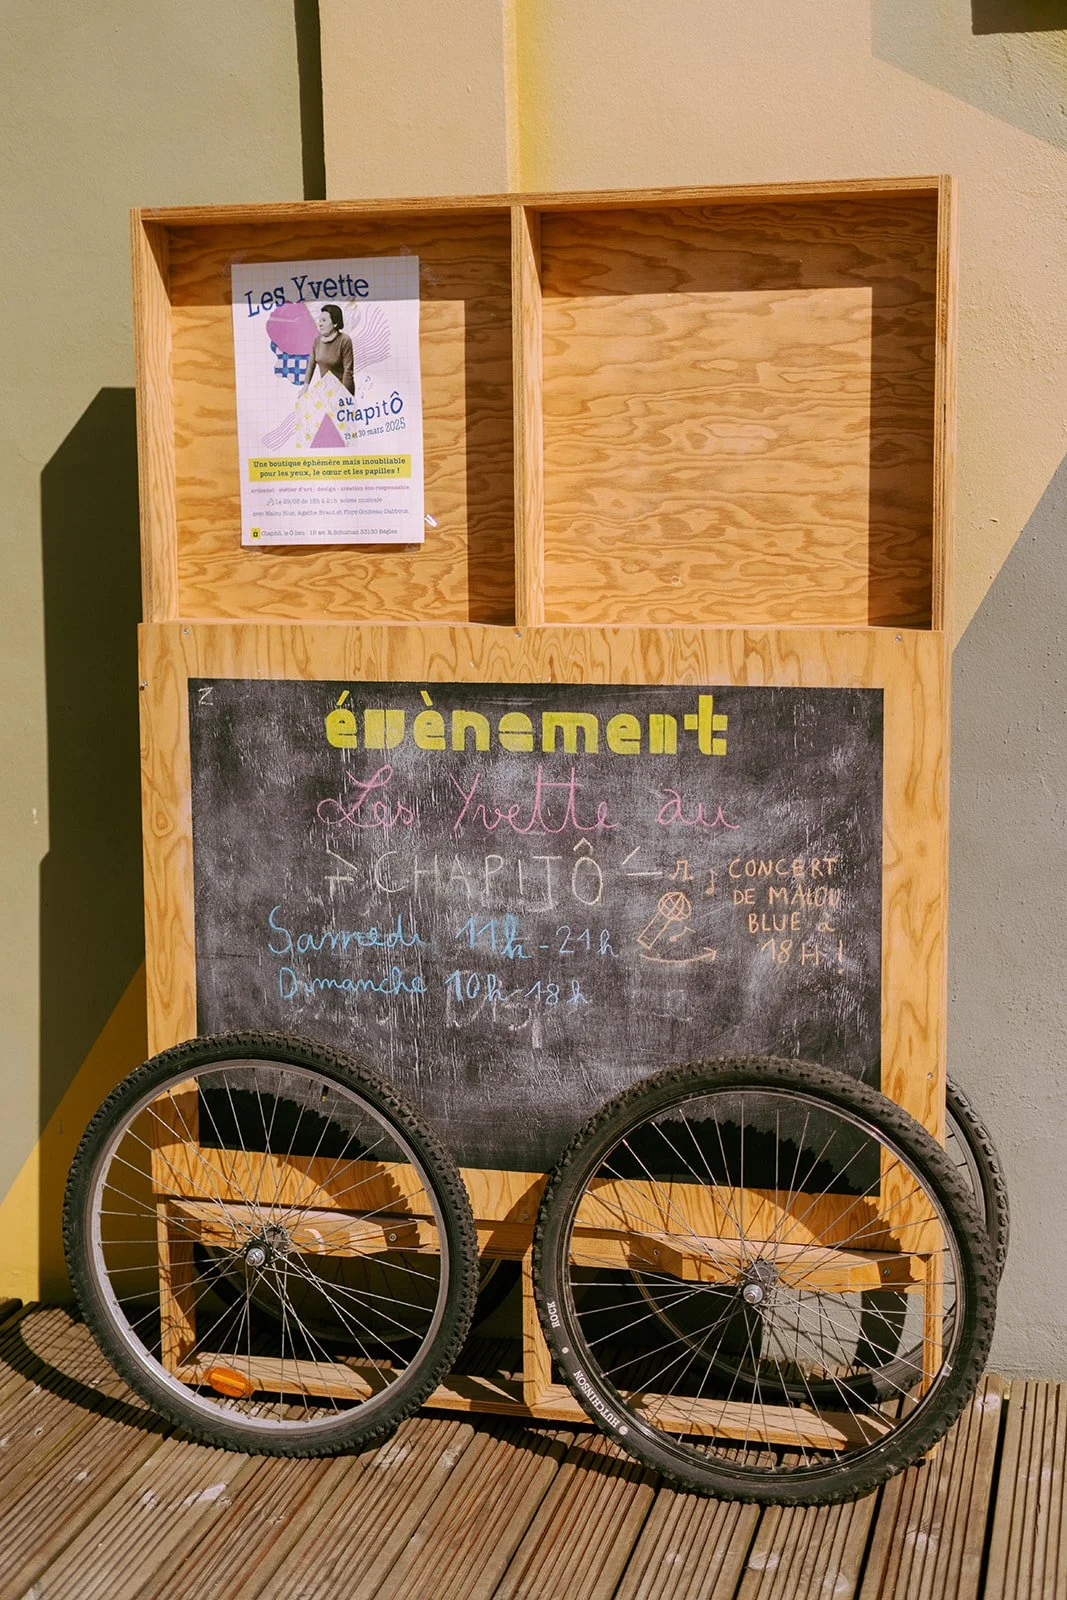 Les Yvette
au
chapitÔ
29 et 30 mars 2025
Une boutique éphémère mais inoubliable
pour les yeux, le cœur et les papilles !
artisanat - métier d'art - design - création éco-responsable
Le 29/03 de 18h à 21h soirée musicale
avec Malou Blue, Agathe Braut et Flore Goubeau-Dabbour.
Chapitô, le Ô lieu - 19 av. R. Schuman 33130 Bègles
Z
évènement
Les Yvette au
CHAPITÔ
CONCERT
DE MALOU
BLUE à
18 H !
Samedi 11h - 21h
Dimanche 10h - 18h
ROCK
HUTCHINSON